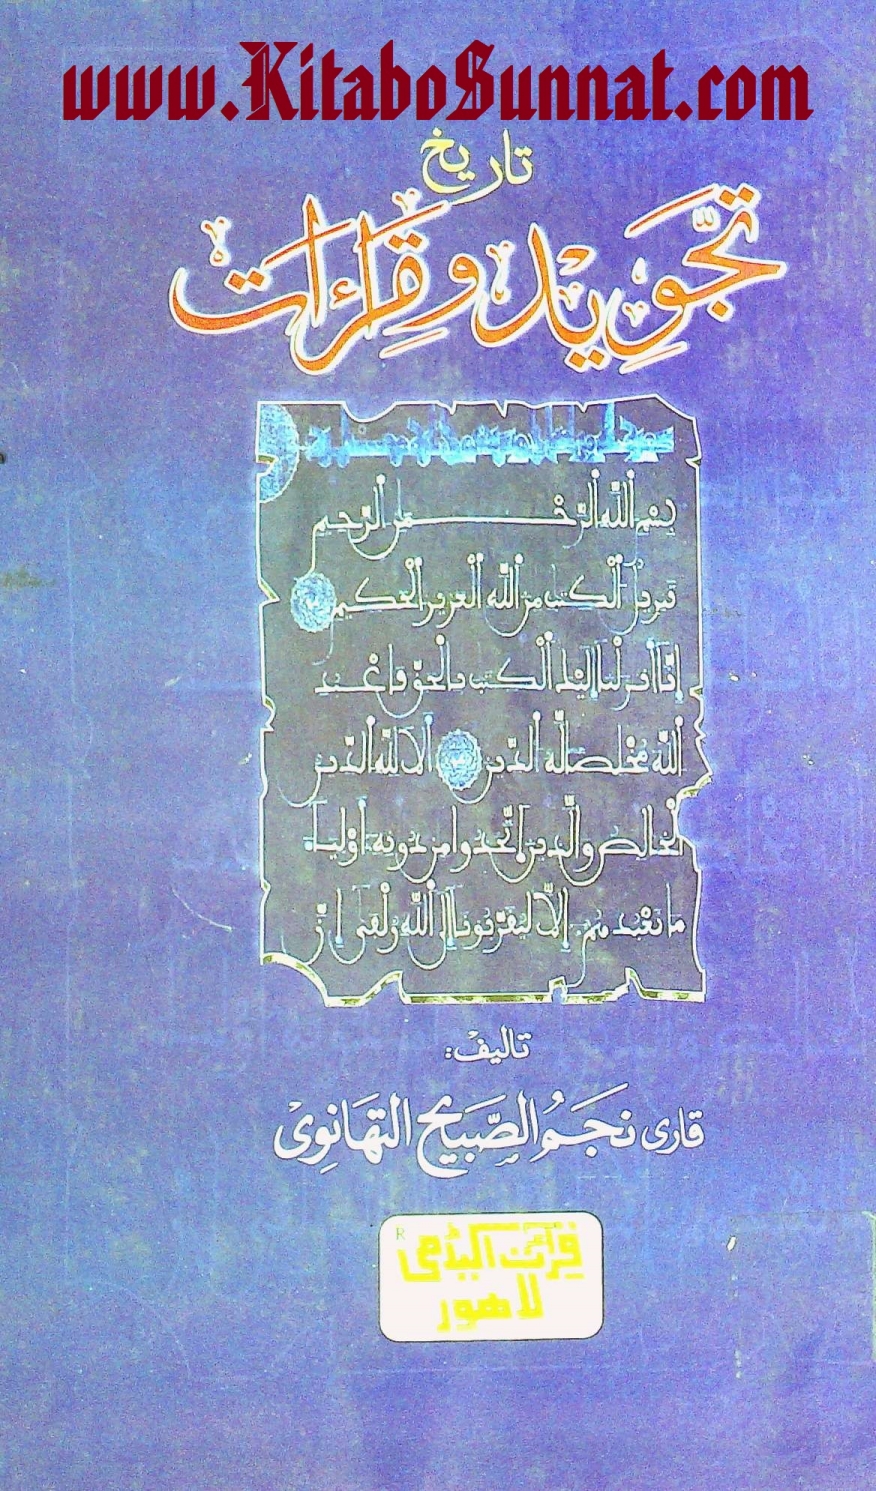 www.KitaboSunnat.com
تاریخ
تجّوِید و قِرَاءَات
بسم الله الرحمن الرحيم
تنزيل الكتب من الله العزيز الحكيم
انا انزلنا اليك الكتب بالحق فاعبد
الله مخلصا له الدين الا لله الدين
الخالص والذين اتخذوا من دونه اولياء
ما نعبدهم الا ليقربونا الى الله زلفى ان
تالیف:
قاری نجمُ الصَّبیح التھَانوِیْ
قرآءت اکیڈمی R
لاہور